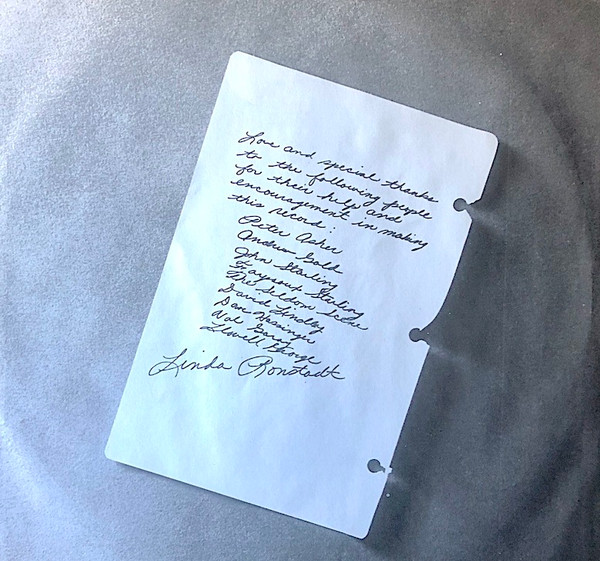 Love and special thanks
to the following people
for their help and
encouragement in making
this record:
Peter Asher
Andrew Gold
John Starling
Fayssoux Starling
The Seldom Scene
David Lindley
Dan Wassinger
Val Garay
Llowell George
Linda Ronstadt